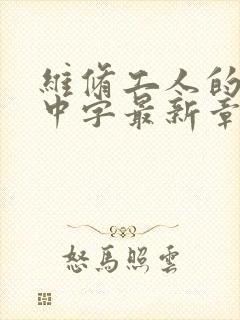 維修工人的
中字最新章
怒馬照雲